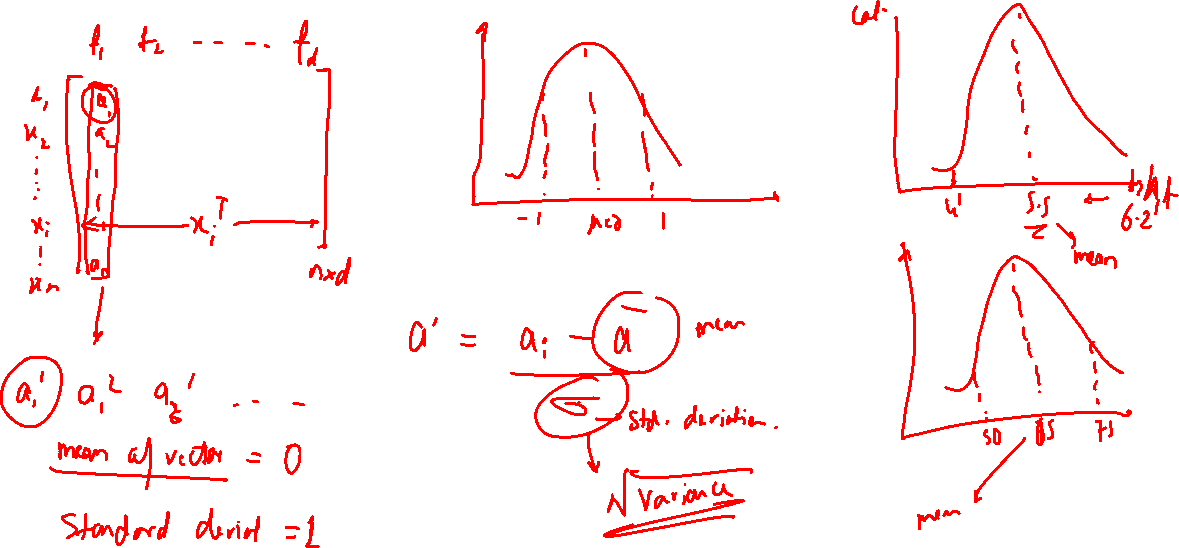 f₁ f₂ ..... f_d
x₁ a₁
x₂ a₂
xᵢ xᵢᵀ
xₙ aₙ
n×d
a₁' a₁² a₃' ...
mean of vector = 0
Standard deviat = 1
-1 μ=0 1
a' = aᵢ - ā mean
σ std. deviation.
√Variance
4' 5.5 6.2
mean
50 65 75
mean